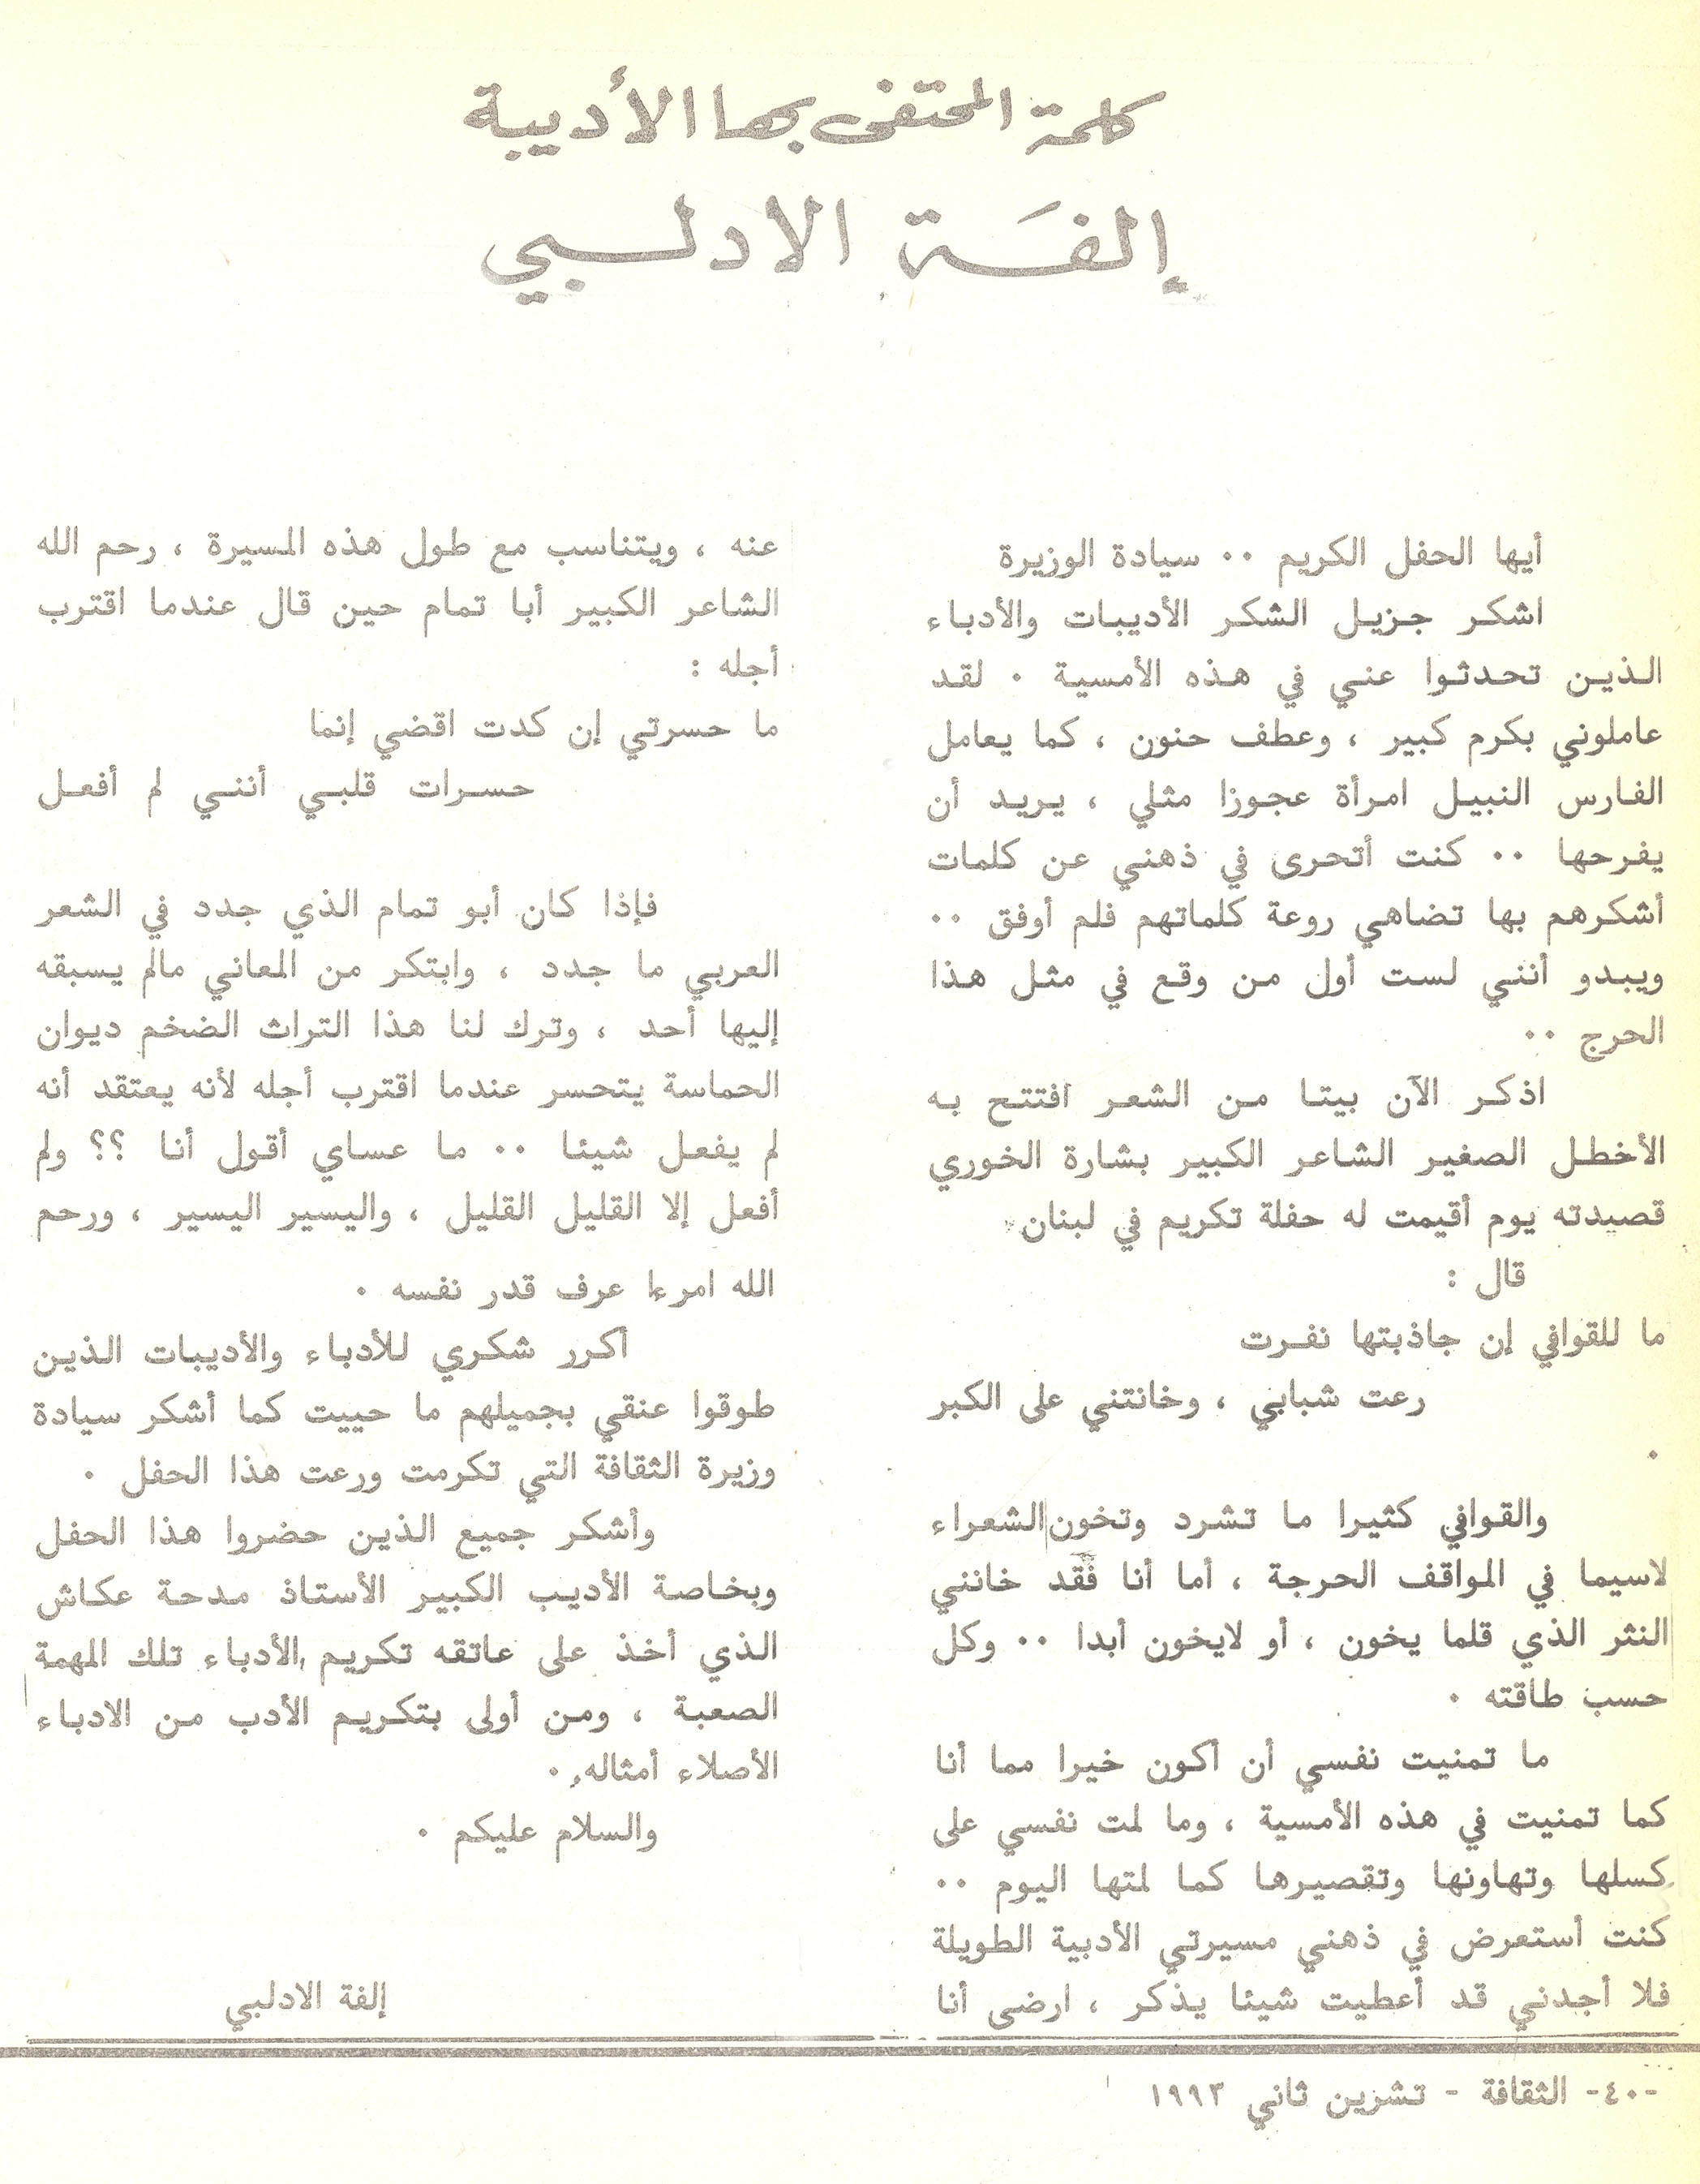 كلمة المحتفى بها الأديبة
إلفَة الادلبي
أيها الحفل الكريم ٠٠ سيادة الوزيرة
اشكر جزيل الشكر الأديبات والأدباء
الذين تحدثوا عني في هذه الأمسية ٠ لقد
عاملوني بكرم كبير ، وعطف حنون ، كما يعامل
الفارس النبيل امرأة عجوزا مثلي ، يريد أن
يفرحها ٠٠ كنت أتحرى في ذهني عن كلمات
أشكرهم بها تضاهي روعة كلماتهم فلم أوفق ٠٠
ويبدو أنني لست أول من وقع في مثل هذا
الحرج ٠٠
اذكر الآن بيتا من الشعر افتتح به
الأخطل الصغير الشاعر الكبير بشارة الخوري
قصيدته يوم أقيمت له حفلة تكريم في لبنان
قال :
ما للقوافي إن جاذبتها نفرت
رعت شبابي ، وخانتني على الكبر
٠
والقوافي كثيرا ما تشرد وتخون الشعراء
لاسيما في المواقف الحرجة ، أما أنا فَقد خانني
النثر الذي قلما يخون ، أو لايخون أبدا ٠٠ وكل
حسب طاقته ٠
ما تمنيت نفسي أن أكون خيرا مما أنا
كما تمنيت في هذه الأمسية ، وما لمت نفسي على
كسلها وتهاونها وتقصيرها كما لمتها اليوم ٠٠
كنت أستعرض في ذهني مسيرتي الأدبية الطويلة
فلا أجدني قد أعطيت شيئا يذكر ، ارضى أنا
عنه ، ويتناسب مع طول هذه المسيرة ، رحم الله
الشاعر الكبير أبا تمام حين قال عندما اقترب
أجله :
ما حسرتي إن كدت اقضي إنما
حسرات قلبي أنني لم أفعل
فإذا كان أبو تمام الذي جدد في الشعر
العربي ما جدد ، وابتكر من المعاني مالم يسبقه
إليها أحد ، وترك لنا هذا التراث الضخم ديوان
الحماسة يتحسر عندما اقترب أجله لأنه يعتقد أنه
لم يفعل شيئا ٠٠ ما عساي أقول أنا ؟؟ ولم
أفعل إلا القليل القليل ، واليسير اليسير ، ورحم
الله امرءا عرف قدر نفسه ٠
أكرر شكري للأدباء والأديبات الذين
طوقوا عنقي بجميلهم ما حييت كما أشكر سيادة
وزيرة الثقافة التي تكرمت ورعت هذا الحفل ٠
وأشكر جميع الذين حضروا هذا الحفل
وبخاصة الأديب الكبير الأستاذ مدحة عكاش
الذي أخذ على عاتقه تكريم الأدباء تلك المهمة
الصعبة ، ومن أولى بتكريم الأدب من الادباء
الأصلاء أمثاله ٠
والسلام عليكم ٠
إلفة الادلبي
-٤٠- الثقافة - تشرين ثاني ١٩٩٣